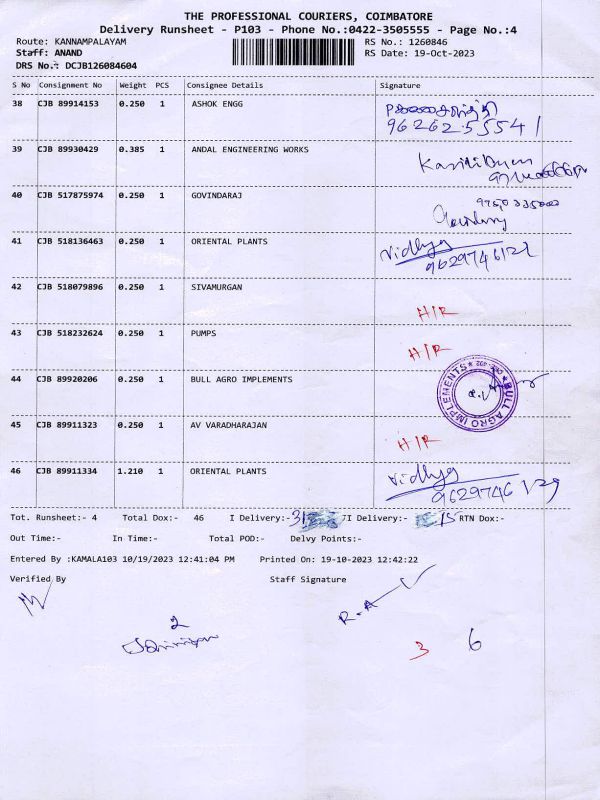 THE PROFESSIONAL COURIERS, COIMBATORE
Delivery Runsheet - P103 - Phone No.:0422-3505555 - Page No.:4
Route: KANNAMPALAYAM RS No.: 1260846
Staff: ANAND RS Date: 19-Oct-2023
DRS No.: DCJB126084604
S No Consignment No Weight PCS Consignee Details Signature
38 CJB 89914153 0.250 1 ASHOK ENGG
9626255541
39 CJB 89930429 0.385 1 ANDAL ENGINEERING WORKS
40 CJB 517875974 0.250 1 GOVINDARAJ
41 CJB 518136463 0.250 1 ORIENTAL PLANTS Vidhya
9629746129
42 CJB 518079896 0.250 1 SIVAMURGAN
H/R
43 CJB 518232624 0.250 1 PUMPS
H/R
44 CJB 89920206 0.250 1 BULL AGRO IMPLEMENTS
BULL AGRO IMPLEMENTS
45 CJB 89911323 0.250 1 AV VARADHARAJAN
H/R
46 CJB 89911334 1.210 1 ORIENTAL PLANTS Vidhya
9629746129
Tot. Runsheet:- 4 Total Dox:- 46 I Delivery:- 31 II Delivery:- 15 RTN Dox:-
Out Time:- In Time:- Total POD:- Delvy Points:-
Entered By :KAMALA103 10/19/2023 12:41:04 PM Printed On: 19-10-2023 12:42:22
Verified By Staff Signature
2
3 6